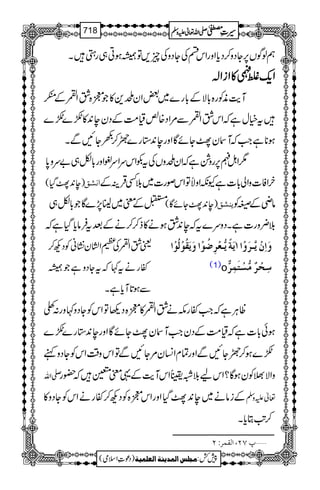 سیرتِ مصطفی صلی اللہ تعالیٰ علیہ وسلم 718
ہم لوگوں پر جادو کر دیا اور اس قسم کی جادو کی چیزیں تو ہمیشہ ہوتی ہی رہتی ہیں۔
ایک غلط فہمی کا ازالہ
آیت مذکورہ بالا کے بارے میں بعض ان ملحدین کا جو معجزہ شق القمر کے منکر
ہیں یہ خیال ہے کہ اس شق القمر سے مراد خالص قیامت کے دن چاند کا ٹکڑے ٹکڑے
ہونا ہے جب کہ آسمان پھٹ جائے گا اور چاند ستارے جھڑ کر بکھر جائیں گے۔
مگر اہل فہم پر روشن ہے کہ ان ملحدوں کی یہ بکواس سراسر لغو اور بالکل ہی بے سروپا
خرافات والی بات ہے کیونکہ اولاً تو اس صورت میں بلا کسی قرینہ کے انشق (چاند پھٹ گیا)
ماضی کے صیغہ کو ینشق (چاند پھٹ جائے گا) مستقبل کے معنی میں لینا پڑے گا جو بالکل ہی
بلا ضرورت ہے۔ دوسرے یہ کہ چاند شق ہونے کا ذکر کرنے کے بعد یہ فرمایا گیا ہے کہ
وَاِنْ یَّرَوْا اٰیَةً یُّعْرِضُوْا وَیَقُوْلُوْا یعنی شق القمر کی عظیم الشان نشانی کو دیکھ کر
سِحْرٌ مُّسْتَمِرٌّ (1) کفار نے یہ کہا کہ یہ جادو ہے جو ہمیشہ
سے ہوتا آیا ہے۔
ظاہر ہے کہ جب کفار مکہ نے شق القمر کا معجزہ دیکھا تو اس کو جادو کہا ورنہ کھلی
ہوئی بات ہے کہ قیامت کے دن جب آسمان پھٹ جائے گا اور چاند ستارے ٹکڑے
ٹکڑے ہو کر جھڑ جائیں گے اور تمام انسان مر جائیں گے تو اس وقت اس کو جادو کہنے
والا بھلا کون ہوگا؟ اس لئے بلاشبہ یقیناً اس آیت کے یہی معنی متعین ہیں کہ حضور صلی اللہ
تعالیٰ علیہ وسلم کے زمانے میں چاند پھٹ گیا اور اس معجزہ کو دیکھ کر کفار نے اس کو جادو کا
کرتب بتایا۔
1......پ ۲۷، القمر: ۲
پیش کش: مجلس المدینة العلمیة (دعوتِ اسلامی)